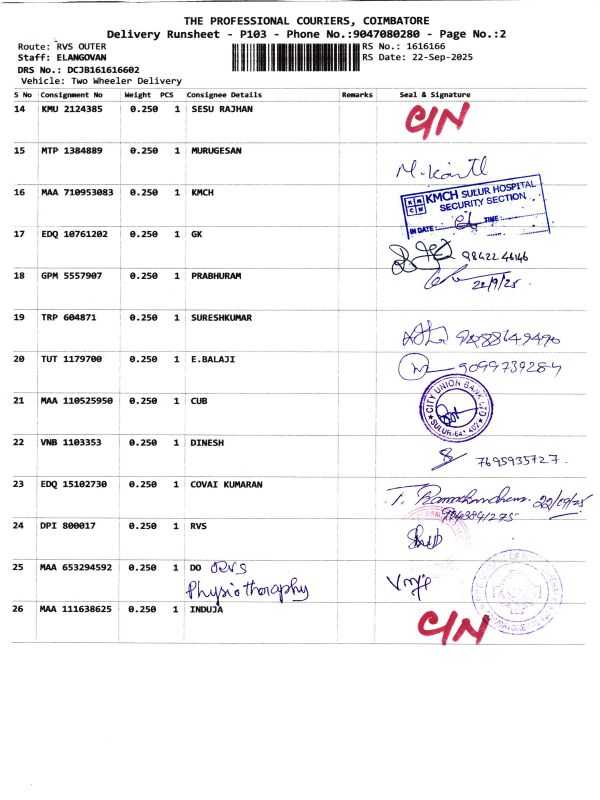 THE PROFESSIONAL COURIERS, COIMBATORE
Delivery Runsheet - P103 - Phone No.:9047080280 - Page No.:2
Route: RVS OUTER RS No.: 1616166
Staff: ELANGOVAN RS Date: 22-Sep-2025
DRS No.: DCJB161616602
Vehicle: Two Wheeler Delivery
S No Consignment No Weight PCS Consignee Details Remarks Seal & Signature
14 KMU 2124385 0.250 1 SESU RAJHAN C/N
15 MTP 1384889 0.250 1 MURUGESAN
16 MAA 710953083 0.250 1 KMCH
KMCH SULUR HOSPITAL
SECURITY SECTION
IN DATE: TIME:
17 EDQ 10761202 0.250 1 GK 98422 46146
18 GPM 5557907 0.250 1 PRABHURAM 22/9/25
19 TRP 604871 0.250 1 SURESHKUMAR
20 TUT 1179700 0.250 1 E.BALAJI
21 MAA 110525950 0.250 1 CUB CITY UNION BANK LTD SULUR-641 402
22 VNB 1103353 0.250 1 DINESH 7695935727
23 EDQ 15102730 0.250 1 COVAI KUMARAN 22/09/25
24 DPI 800017 0.250 1 RVS
25 MAA 653294592 0.250 1 DO RVS
Physiotheraphy
26 MAA 111638625 0.250 1 INDUJA C/N